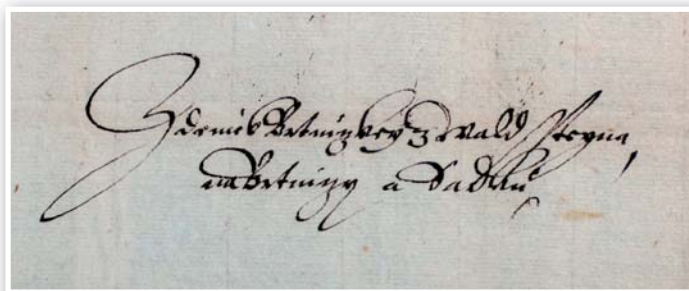 Zdeniek Brtniczkey z Waldssteyna,
na Brtniczy a Sadku